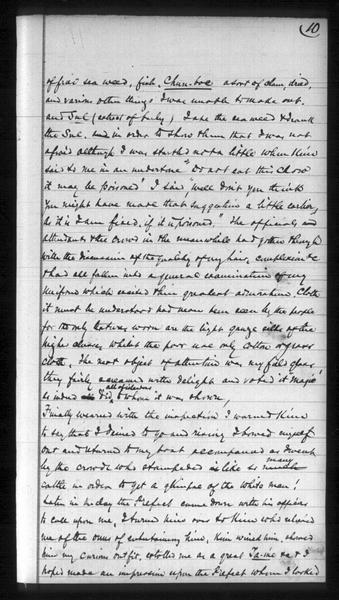 10
of frai sea weed, fish, Chun-boc a sort of clam, dried,
and various other things I was unable to make out.
and Sul (extract of barley) I ate the sea weed & drank
the Sul, and in order to show them that I was not
afraid although I was startled not a little when Kim
said to me in an undertone "Do not eat this Chosö
it may be poisoned! I said, well don't you think
you might have made that suggestion a little earlier,
as it is I am fixed, if it is poisoned." The officials in
attendance & the crowd in the meanwhile had gotten through
with the discussion of the quality of my hair, complexion &c
& had all fallen into a general examination of my
uniform which excited their greatest admiration, Cloth
it must be understood had never been seen by the people
for the only textures worn are the light gauze silks of the
high classes, whilst the poor use only cotton or grass
cloth. The next object of attention was my field glass,
they fairly screamed with delight and voted it Magic
as indeed did all officers to whom it was shown,
Finally wearied with the inspection I warned Kim
to say that I desired to go and rising I bowed myself
out and returned to my boat accompanied as I went
by the crowds who stampeded like so many
cattle in order to get a glimpse of the white man!
Later in the day the Prefect came down with his officers
to call upon me, I turned him over to Kim who relieved
me of the onus of entertaining him, Kim wined him, showed
him my curious outfit, extolled me as a great Ta-in &c & I
hoped made an impression upon the Prefect whom I looked